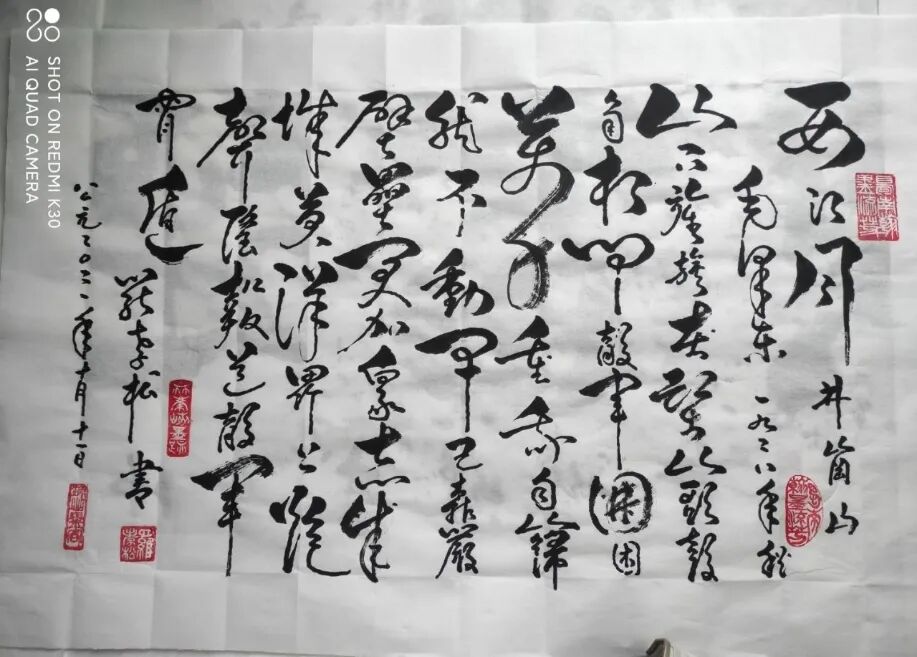 西江月 井崗山
毛澤东 一九二八年秋
山下旌旗在望山頭鼓
角相闻敵軍圍困
萬千重我自巋
然不動早已森嚴
壁壘更加衆志成
城黄洋界上炮
聲隆報道敵軍
宵遁 松書
公元二〇二一年十月十一日
SHOT ON REDMI K30
AI QUAD CAMERA